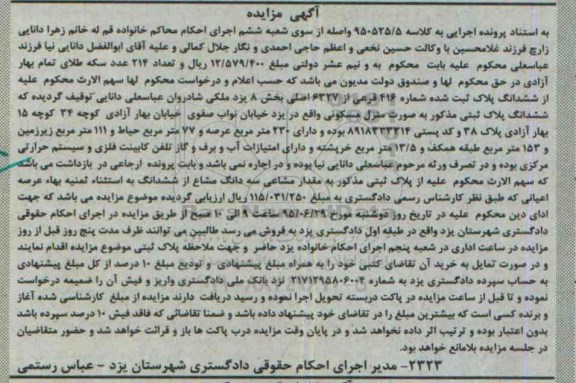 آگهی مزایده
به استناد پرونده اجرایی به کلاسه ۹۵۰۵۲۵/۵ واصله از سوی شعبه ششم اجرای احکام محاکم خانواده قم له خانم زهرا دانایی
زارچ فرزند غلامحسین با وکالت حسین نخعی و اعظم حاجی احمدی و نگار جلال کمالی و علیه آقای ابوالفضل دانایی نیا فرزند
عباسعلی محکوم علیه بابت محکوم به و نیم عشر دولتی مبلغ ۱۲/۵۷۹/۴۰۰ ریال و تعداد ۲۱۴ عدد سکه طلای تمام بهار
آزادی در حق محکوم لها و صندوق دولت مدیون می باشد که حسب اعلام و درخواست محکوم لها سهم الارث محکوم علیه
از ششدانگ پلاک ثبت شده شماره ۴۱۶ فرعی از ۶۳۲۷ اصلی بخش ۸ یزد ملکی شادروان عباسعلی دانایی توقیف گردیده که
ششدانگ پلاک ثبتی مذکور به صورت منزل مسکونی واقع در یزد خیابان نواب صفوی خیابان بهار آزادی کوچه ۲۴ کوچه ۱۵
بهار آزادی پلاک ۳۸ و کد پستی ۸۹۱۸۳۳۳۲۱۴ بوده و دارای ۲۳۰ متر مربع عرصه و ۷۷ متر مربع حیاط و ۱۱۱ متر مربع زیرزمین
و ۱۵۳ متر مربع طبقه همکف و ۱۳/۵ متر مربع خرپشته و دارای امتیازات آب و برف و گاز تلفن کابینت فلزی و سیستم حرارتی
مرکزی بوده و در تصرف ورثه مرحوم عباسعلی دانایی نیا بوده و در اجاره نمی باشد و بابت پرونده ارجاعی در بازداشت می باشد
که سهم الارث محکوم علیه از پلاک ثبتی مذکور به مقدار مشاعی سه دانگ مشاع از ششدانگ به استثناء ثمنیه بهاء عرصه
اعیانی که طبق نظر کارشناس رسمی دادگستری به مبلغ ۱۱۵/۰۳۱/۲۵۰ ریال ارزیابی گردیده موضوع مزایده می باشد که جهت
ادای دین محکوم علیه در تاریخ روز دوشنبه مورخ ۹۵/۰۶/۲۹ ساعت ۹ الی ۱۰ صبح از طریق مزایده در اجرای احکام حقوقی
دادگستری شهرستان یزد واقع در طبقه اول دادگستری یزد به فروش می رسد طالبین می توانند ظرف مدت پنج روز قبل از روز
مزایده در ساعت اداری در شعبه پنجم اجرای احکام خانواده یزد حاضر و جهت ملاحظه پلاک ثبتی موضوع مزایده اقدام نمایند
و در صورت تمایل به خرید آن تقاضای کتبی خود را به همراه مبلغ پیشنهادی و تودیع مبلغ ۱۰ درصد از کل مبلغ پیشنهادی
به حساب سپرده دادگستری یزد به شماره نزد بانک ملی دادگستری واریز و فیش آن را ضمیمه درخواست
نموده و تا قبل از ساعت مزایده در پاکت دربسته تحویل اجرا نموده و رسید دریافت دارند مزایده از مبلغ کارشناسی شده آغاز
و برنده کسی است که بیشترین مبلغ را در تقاضای خود پیشنهاد داده باشد و ضمنا تقاضائی که فاقد فیش ۱۰ درصد سپرده باشد
بدون اعتبار بوده و ترتیب اثر داده نخواهد شد و در پایان وقت مزایده درب پاکت ها باز و قرائت خواهد شد و حضور متقاضیان
در جلسه مزایده بلامانع خواهد بود.
۲۳۲۳- مدیر اجرای احکام حقوقی دادگستری شهرستان یزد - عباس رستمی